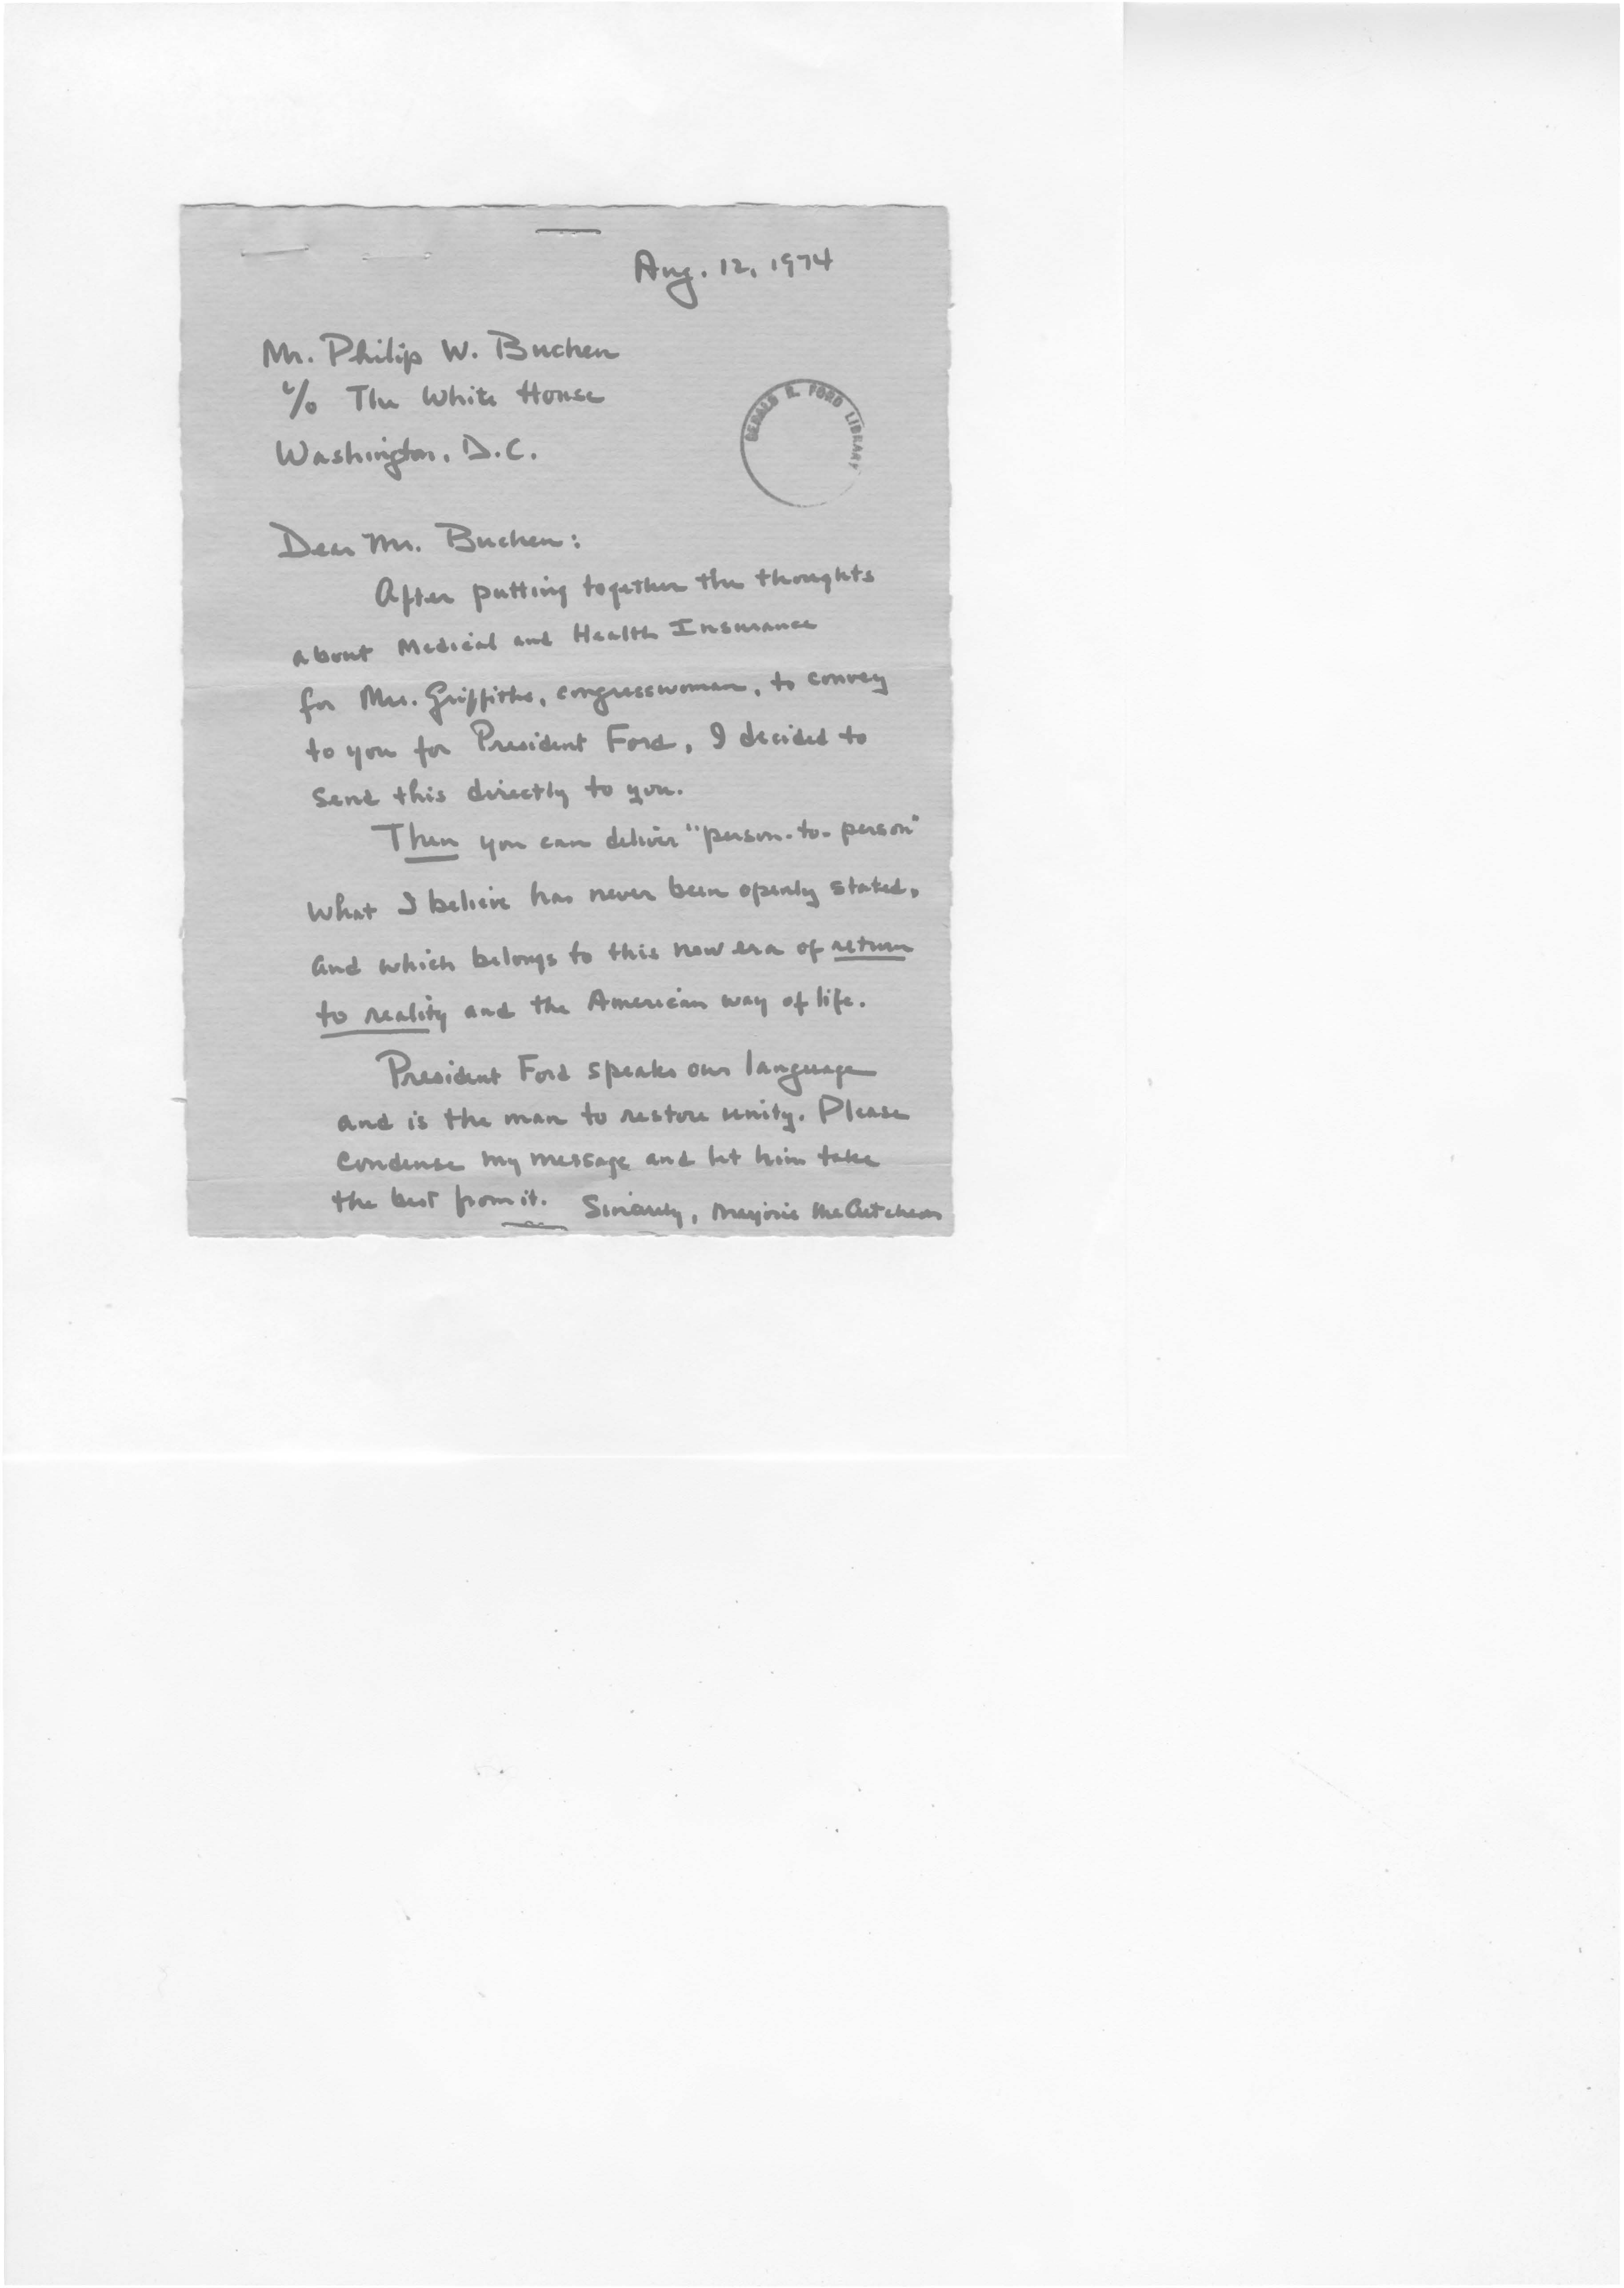 Aug. 12, 1974
Mr. Philip W. Buchen
c/o The White House
Washington, D.C.
GERALD R. FORD LIBRARY
Dear Mr. Buchen:
After putting together the thoughts
about Medical and Health Insurance
for Mrs. Griffiths, congresswoman, to convey
to you for President Ford, I decided to
send this directly to you.
Then you can deliver "person-to-person"
what I believe has never been openly stated,
and which belongs to this new era of return
to reality and the American way of life.
President Ford speaks our language
and is the man to restore unity. Please
condense my message and let him take
the best from it. Sincerely, Marjorie McCutcheon